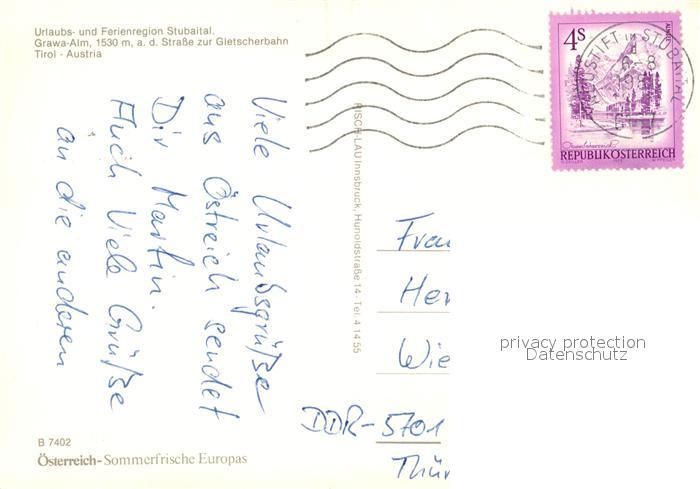 Urlaubs- und Ferienregion Stubaital.
Grawa-Alm, 1530 m, a. d. Straße zur Gletscherbahn
Tirol - Austria
Viele Urlaubsgrüße
aus Östreich sendet
Dir Martin.
Auch Viele Grüße
an die anderen
B 7402
Österreich-Sommerfrische Europas
RISCH-LAU Innsbruck, Hunoldstraße 14 - Tel. 4 14 55
4S
ALMSEE
NEUSTIFT im STUBAITAL
REPUBLIK ÖSTERREICH
Frau
Her
Wie
DDR-5701
Thür
privacy protection
Datenschutz